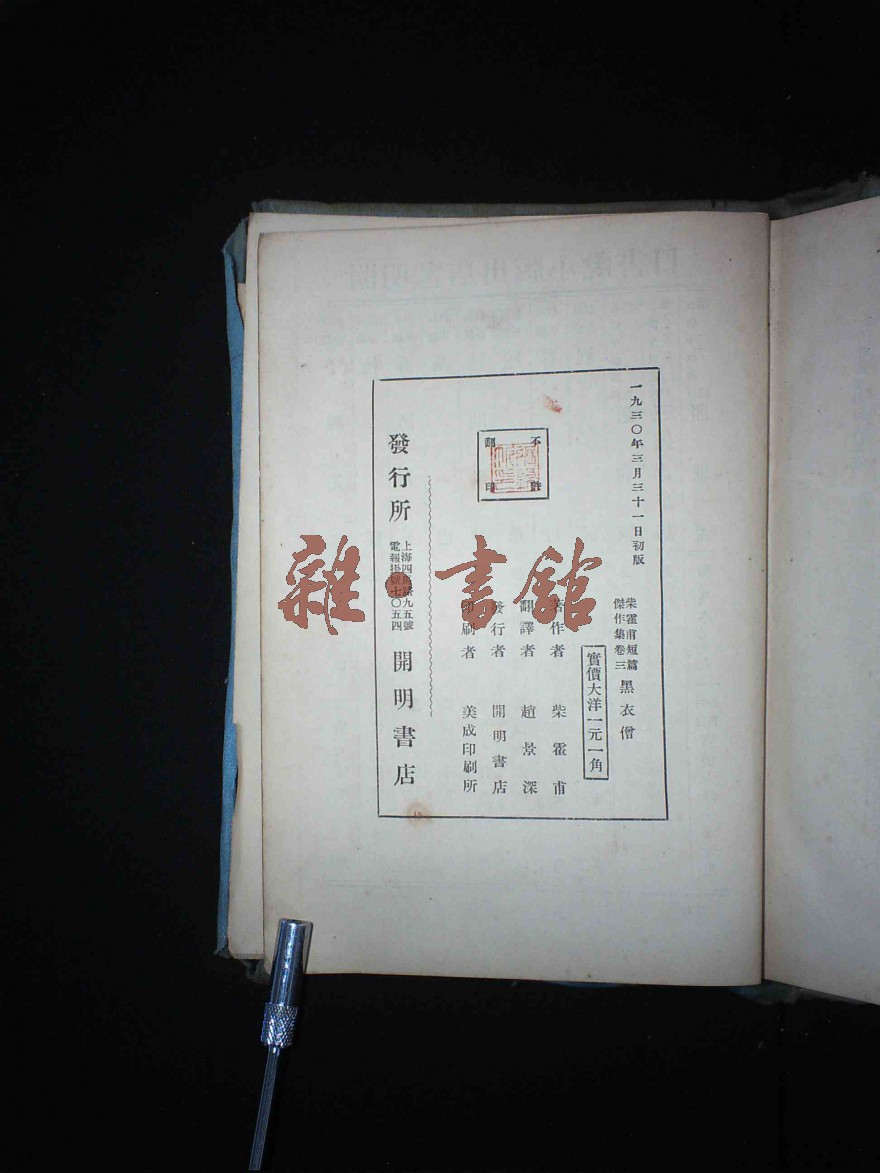 一九三〇年三月三十一日初版
柴霍甫短篇
傑作集卷三
黑衣僧
實價大洋一元一角
不許
翻印
著作者 柴霍甫
翻譯者 趙景深
發行者 開明書店
印刷者 美成印刷所
發行所
上海四馬路九五號
電報掛號七〇五四
開明書店
雜·書館